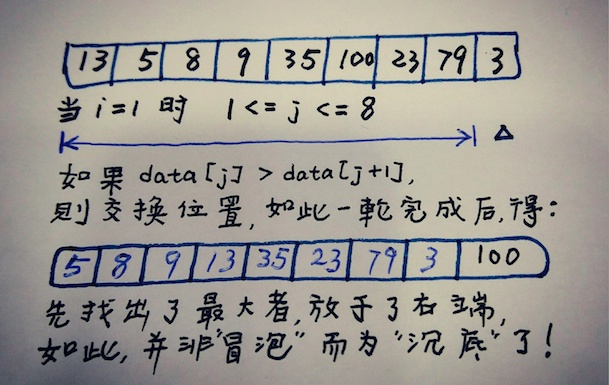 13 5 8 9 35 100 23 79 3
当 i=1 时 1<=j<=8
△
如果 data[j] > data[j+1],
则交换位置,如此一轮完成后,得:
5 8 9 13 35 23 79 3 100
先找出了最大者,放于了右端,
如此,并非"冒泡"而为"沉底"了!